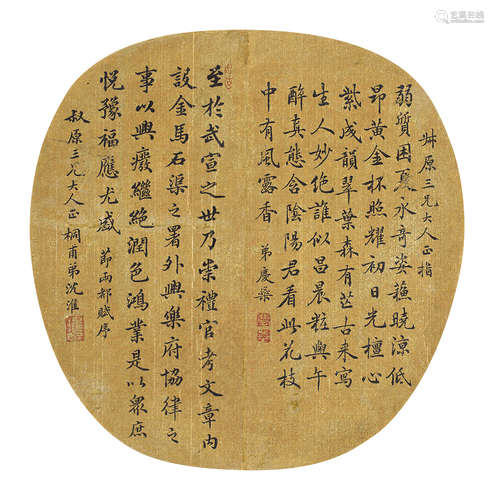 尗原三兄大人正指
弱質困夏永奇姿蘓曉涼低
昂黄金杯照耀初日光檀心
紫成韻翠葉森有芒古来寫
生人妙絶誰似昌晨粧與午
醉真態含陰陽君看此花枝
中有風露香 弟慶燊
至於武宣之世乃崇禮官考文章内
設金馬石渠之署外興樂府協律之
事以興廢繼絶潤色鴻業是以衆庶
悦豫福應尤盛 節兩都賦序
叔原三兄大人正桐甫弟沈淮